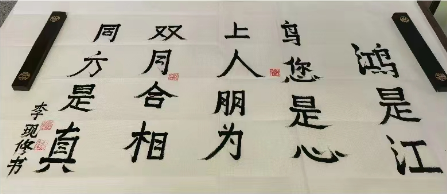 鸿是江
鸟您是心
上人朋为
双月合相
同方是真
李现修书